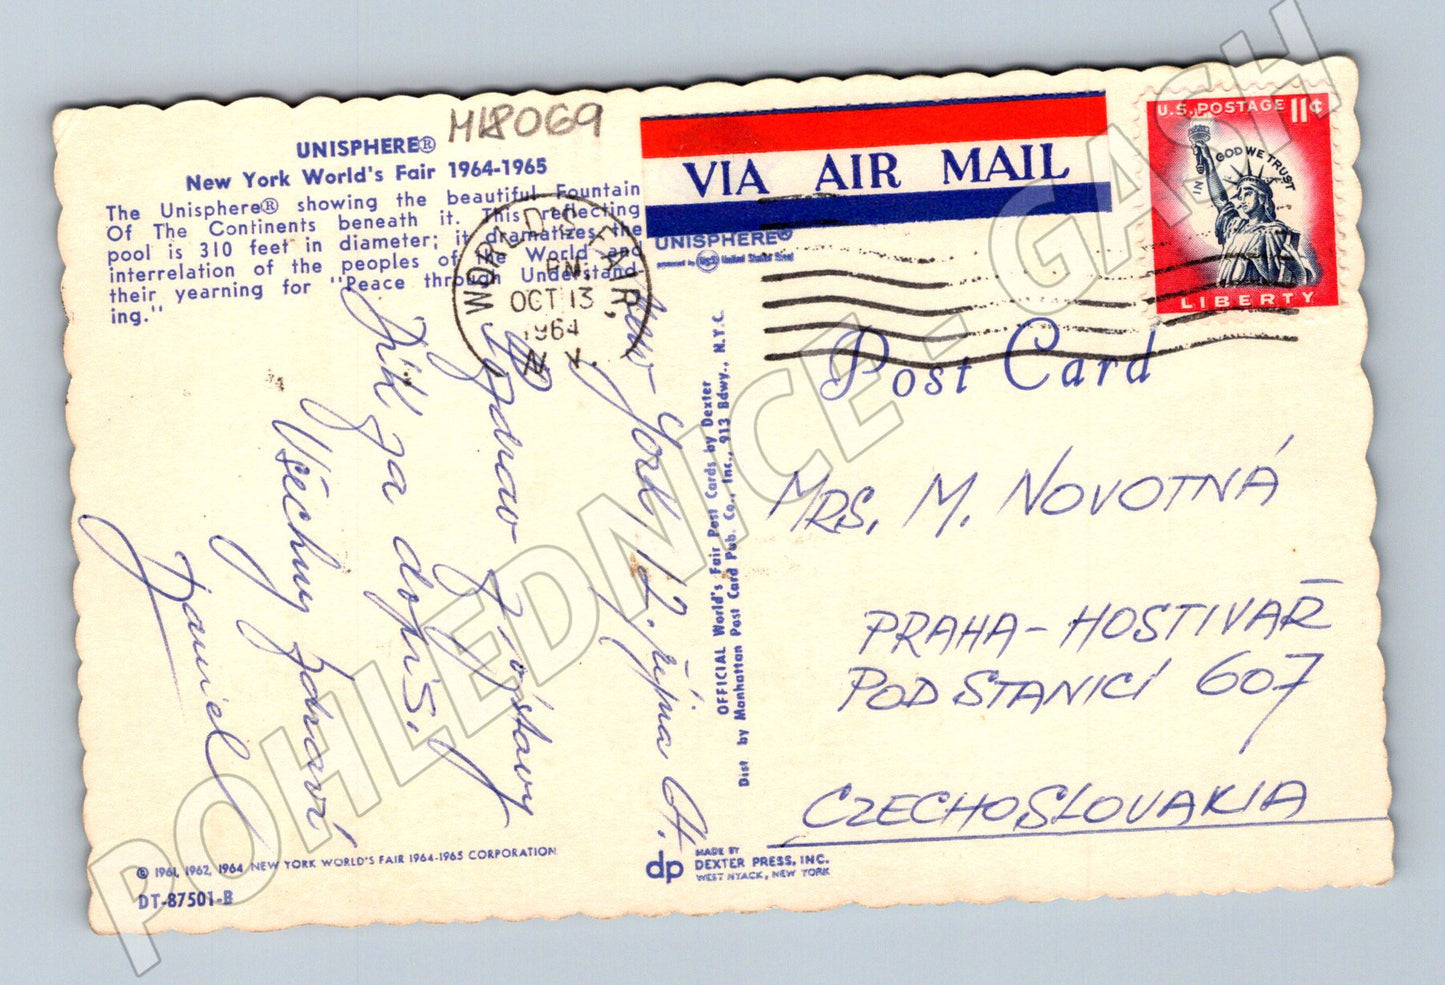 ML8069
UNISPHERE®
New York World's Fair 1964-1965
The Unisphere® showing the beautiful Fountain
Of The Continents beneath it. This reflecting
pool is 310 feet in diameter; it dramatizes the
interrelation of the peoples of the World and
their yearning for "Peace through Understand-
ing."
New York, 12. října 64.
Pozdrav z výstavy
Dík za dopis,
Všechny zdraví
Daniel
© 1961, 1962, 1964 NEW YORK WORLD'S FAIR 1964-1965 CORPORATION
DT-87501-B
WORLD'S FAIR,
PM
OCT 13
1964
N.Y.
VIA AIR MAIL
UNISPHERE®
presented by USS United States Steel
OFFICIAL World's Fair Post Cards by Dexter
Dist by Manhattan Post Card Pub. Co., Inc., 913 Bdwy., N.Y.C.
dp
MADE BY
DEXTER PRESS, INC.
WEST NYACK, NEW YORK
U.S. POSTAGE 11¢
IN GOD WE TRUST
LIBERTY
Post Card
MRS. M. NOVOTNÁ
PRAHA-HOSTIVAŘ
POD STANICÍ 607
CZECHOSLOVAKIA
POHLEDNICE - GASH